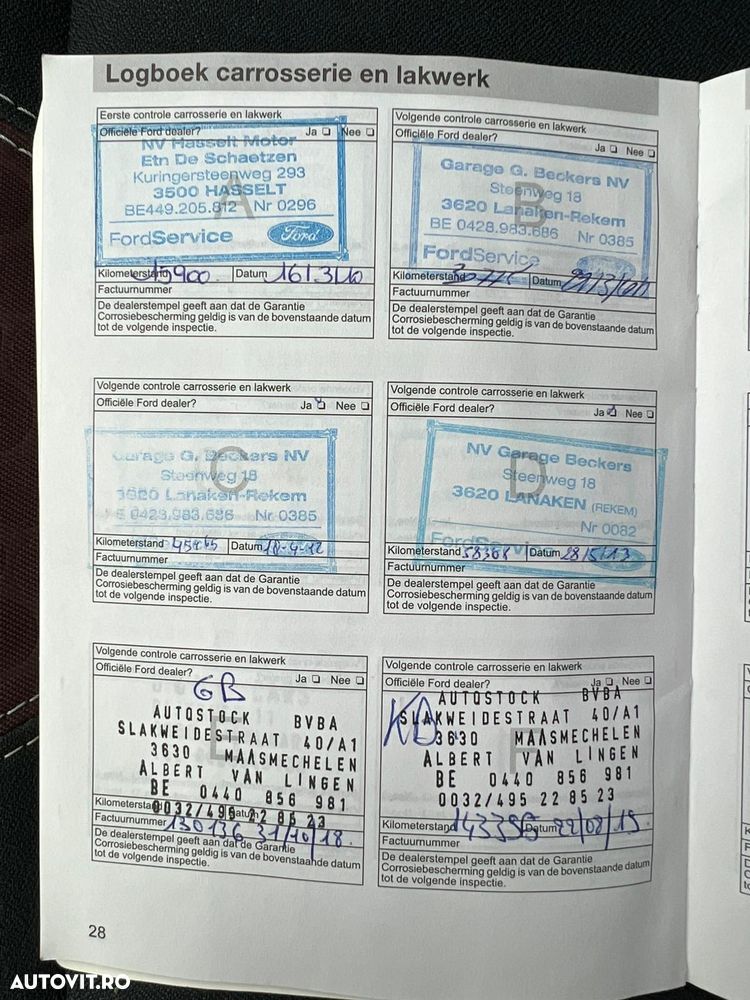 Logboek carrosserie en lakwerk
Eerste controle carrosserie en lakwerk
Officiële Ford dealer? Ja Nee
NV Hasselt Motor
Etn De Schaetzen
Kuringersteenweg 293
3500 HASSELT
BE449.205.812 Nr 0296
FordService Ford
A
Kilometerstand 15900 Datum 16/3/10
Factuurnummer
De dealerstempel geeft aan dat de Garantie
Corrosiebescherming geldig is van de bovenstaande datum
tot de volgende inspectie.
Volgende controle carrosserie en lakwerk
Officiële Ford dealer? Ja Nee
Garage G. Beckers NV
Steenweg 18
3620 Lanaken-Rekem
BE 0428.983.686 Nr 0385
FordService
B
Kilometerstand Datum
Factuurnummer
De dealerstempel geeft aan dat de Garantie
Corrosiebescherming geldig is van de bovenstaande datum
tot de volgende inspectie.
Volgende controle carrosserie en lakwerk
Officiële Ford dealer? Ja Nee
Garage G. Beckers NV
Steenweg 18
3620 Lanaken-Rekem
E 0428.983.686 Nr 0385
C
Kilometerstand Datum 18-4-12
Factuurnummer
De dealerstempel geeft aan dat de Garantie
Corrosiebescherming geldig is van de bovenstaande datum
tot de volgende inspectie.
Volgende controle carrosserie en lakwerk
Officiële Ford dealer? Ja Nee
NV Garage Beckers
Steenweg 18
3620 LANAKEN (REKEM)
Nr 0082
FordService
D
Kilometerstand 58368 Datum 28/5/13
Factuurnummer
De dealerstempel geeft aan dat de Garantie
Corrosiebescherming geldig is van de bovenstaande datum
tot de volgende inspectie.
Volgende controle carrosserie en lakwerk
Officiële Ford dealer? Ja Nee
GB
AUTOSTOCK BVBA
SLAKWEIDESTRAAT 40/A1
3630 MAASMECHELEN
ALBERT VAN LINGEN
BE 0440 856 981
0032/495 22 85 23
E
Kilometerstand Datum
Factuurnummer 130136 31/10/18
De dealerstempel geeft aan dat de Garantie
Corrosiebescherming geldig is van de bovenstaande datum
tot de volgende inspectie.
Volgende controle carrosserie en lakwerk
Officiële Ford dealer? Ja Nee
KD
AUTOSTOCK BVBA
SLAKWEIDESTRAAT 40/A1
3630 MAASMECHELEN
ALBERT VAN LINGEN
BE 0440 856 981
0032/495 22 85 23
F
Kilometerstand 143356 Datum 22/08/19
Factuurnummer
De dealerstempel geeft aan dat de Garantie
Corrosiebescherming geldig is van de bovenstaande datum
tot de volgende inspectie.
28
AUTOVIT.RO